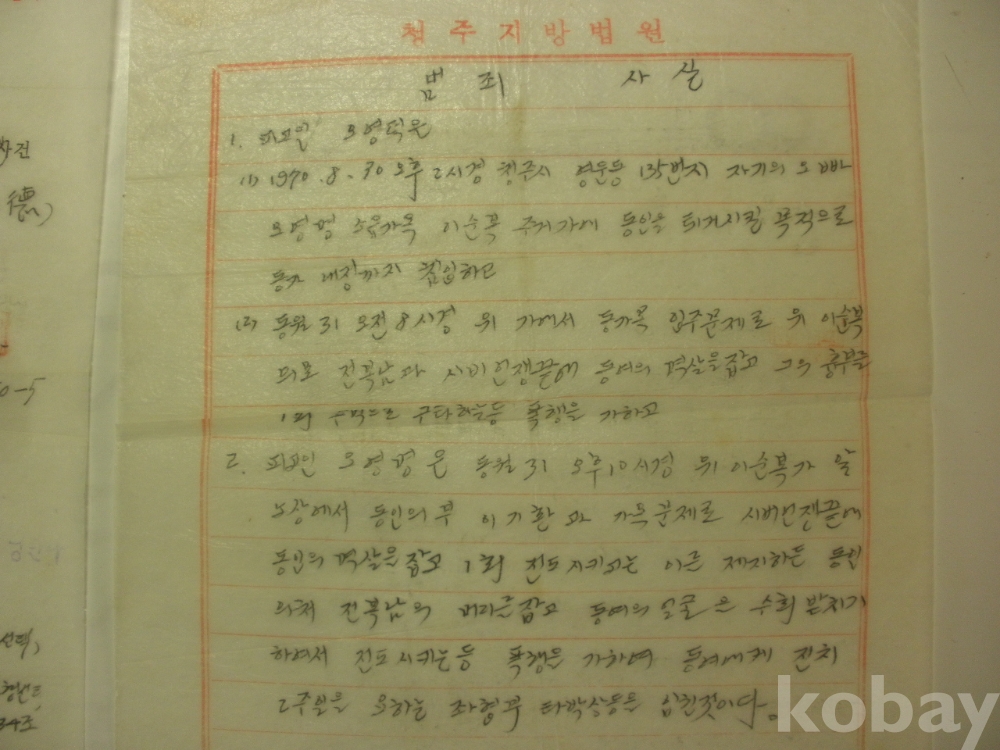 청주지방법원
범죄 사실
1. 피고인 오영덕은
(1) 1970. 8. 30 오후 2시경 청주시 영운동 135번지 자기의 오빠
오영 소유가옥 이순복 주거가에 동인을 퇴거시킬 목적으로
동가 내정까지 침입하고
(2) 동월 31 오전 8시경 위 가에서 동가옥 입주문제로 위 이순복
의모 전복남과 시비언쟁끝에 동녀의 멱살을잡고 그의 흉부를
1회 수먹으로 구타하는등 폭행을 가하고
2. 피고인 오영 은 동월 31 오후 10시경 위 이순복가 앞
노상에서 동인의 부 이기환과 가옥문제로 시비언쟁끝에
동인의 멱살을잡고 1회 전도시키고는 이를 제지하는 동인
의처 전복남의 머리를잡고 동녀의 얼굴을 수회 받치기
하여서 전도시키는등 폭행을 가하여 동녀에게 전치
2주일을 요하는 좌협부 타박상등을 입힌것이다.
사건
德,
0-5
선택,
34조
kobay